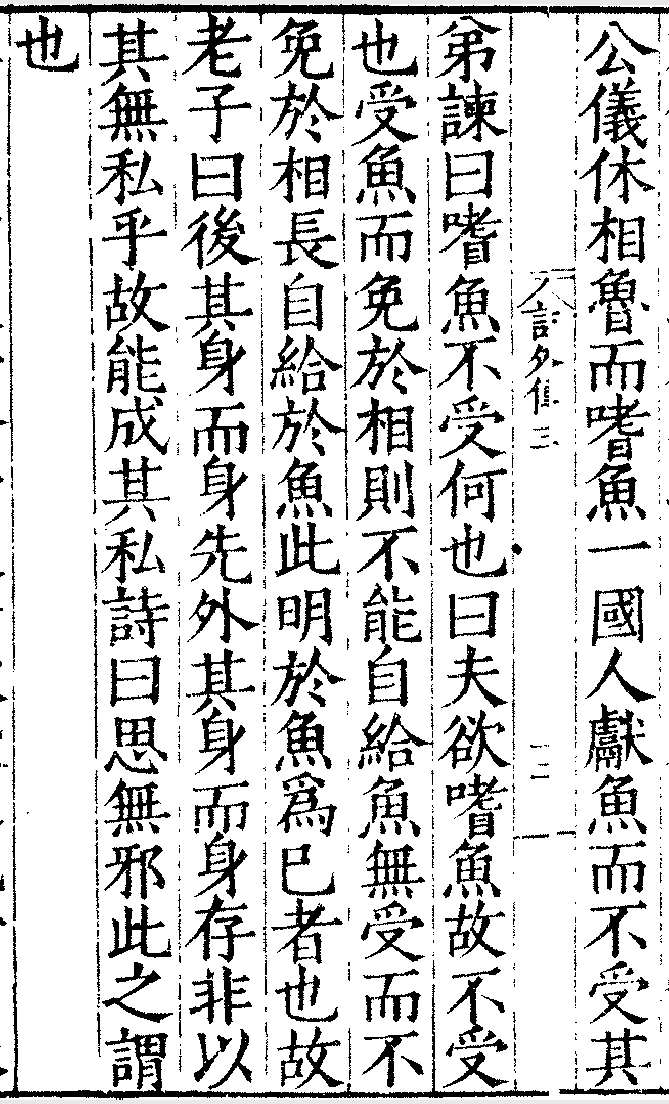 公儀休相魯而嗜魚一國人獻魚而不受其
詩外傳三
二
弟諫曰嗜魚不受何也曰夫欲嗜魚故不受
也受魚而免於相則不能自給魚無受而不
免於相長自給於魚此明於魚爲巳者也故
老子曰後其身而身先外其身而身存非以
其無私乎故能成其私詩曰思無邪此之謂
也